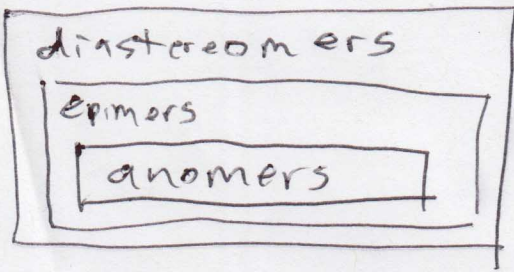 diastereomers
epimers
anomers